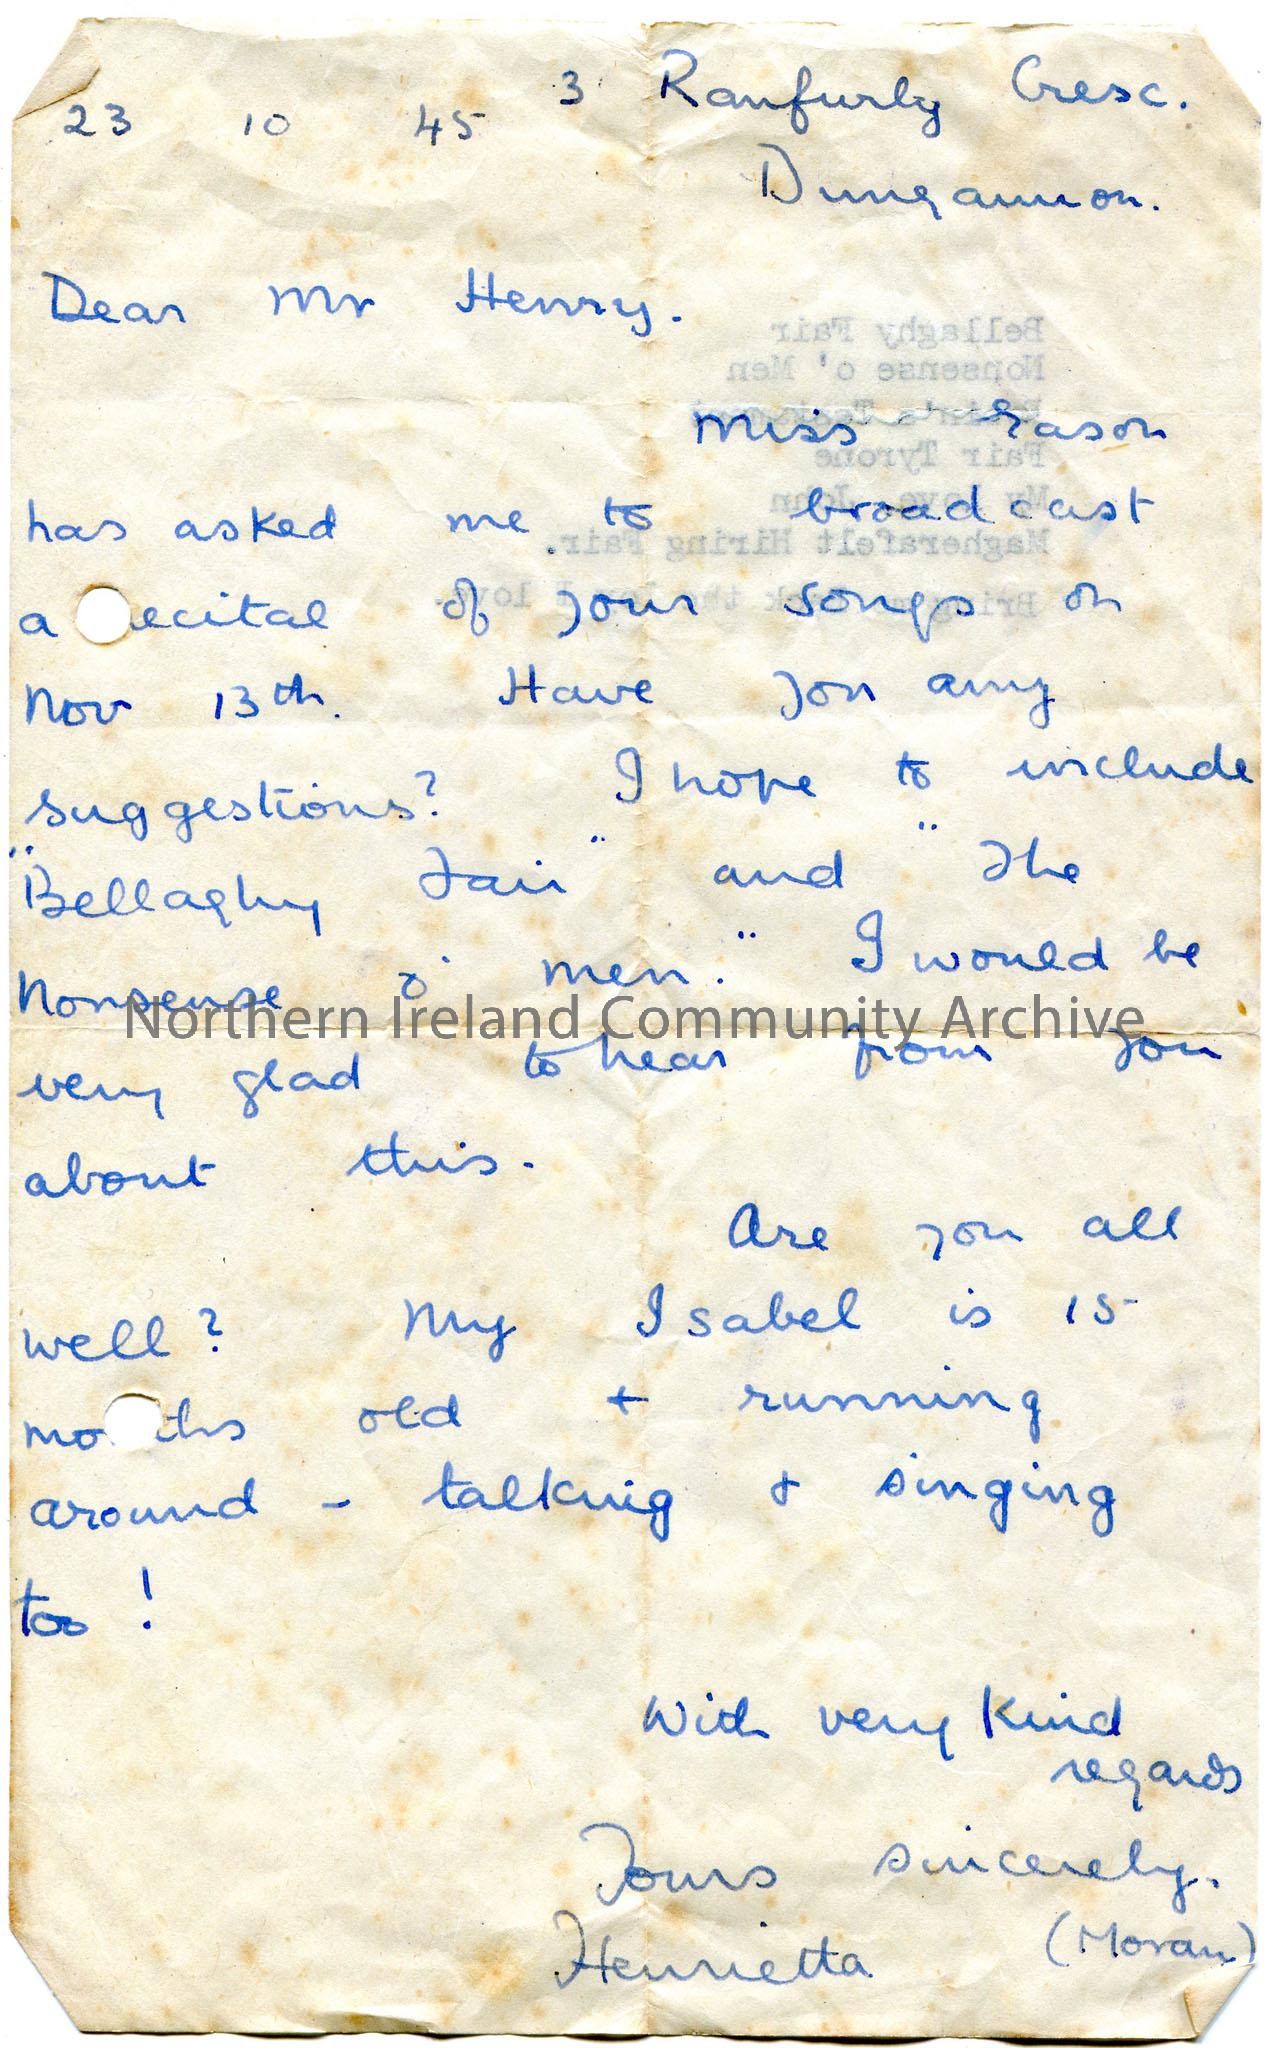 3 Ranfurly Cresc.
23 10 45
Dungannon.
Dear Mr Henry.
Miss Eason
has asked me to broadcast
a recital of your songs on
Nov 13th. Have you any
suggestions? I hope to include
"Bellaghy Fair" and "The
Nonsense o' men." I would be
very glad to hear from you
about this.
Are you all
well? My Isabel is 15
months old + running
around - talking + singing
too!
With very kind
regards
Yours sincerely,
Henrietta (Moran)
Bellaghy Fair
Nonsense o' Men
Fair Tyrone
My love, John
Magherafelt Hiring Fair.
Bring back the I love.
Northern Ireland Community Archive